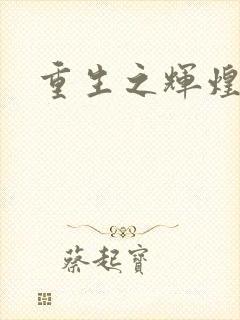 重生之輝煌
蔡起寶